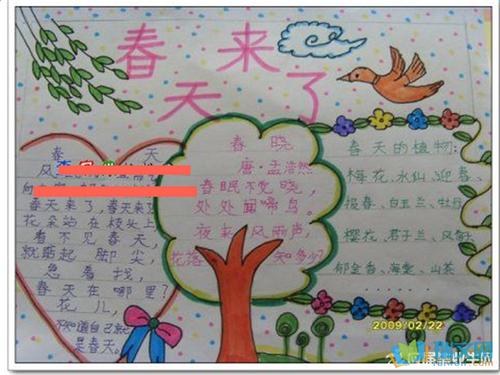 春天来了
春 天
风
向
春天来了,春天来
花朵站在枝头上
看不见春天,
就踮起脚尖,
急着找,
春天在哪里?
花儿,
不知道自己就
是春天。
春 晓
唐·孟浩然
春眠不觉晓,
处处闻啼鸟。
夜来风雨声,
花落知多少?
春天的植物:
梅花、水仙、迎春、
报春、白玉兰、牡丹
樱花、君子兰、风
郁金香、海棠、山茶
......
2009/02/22